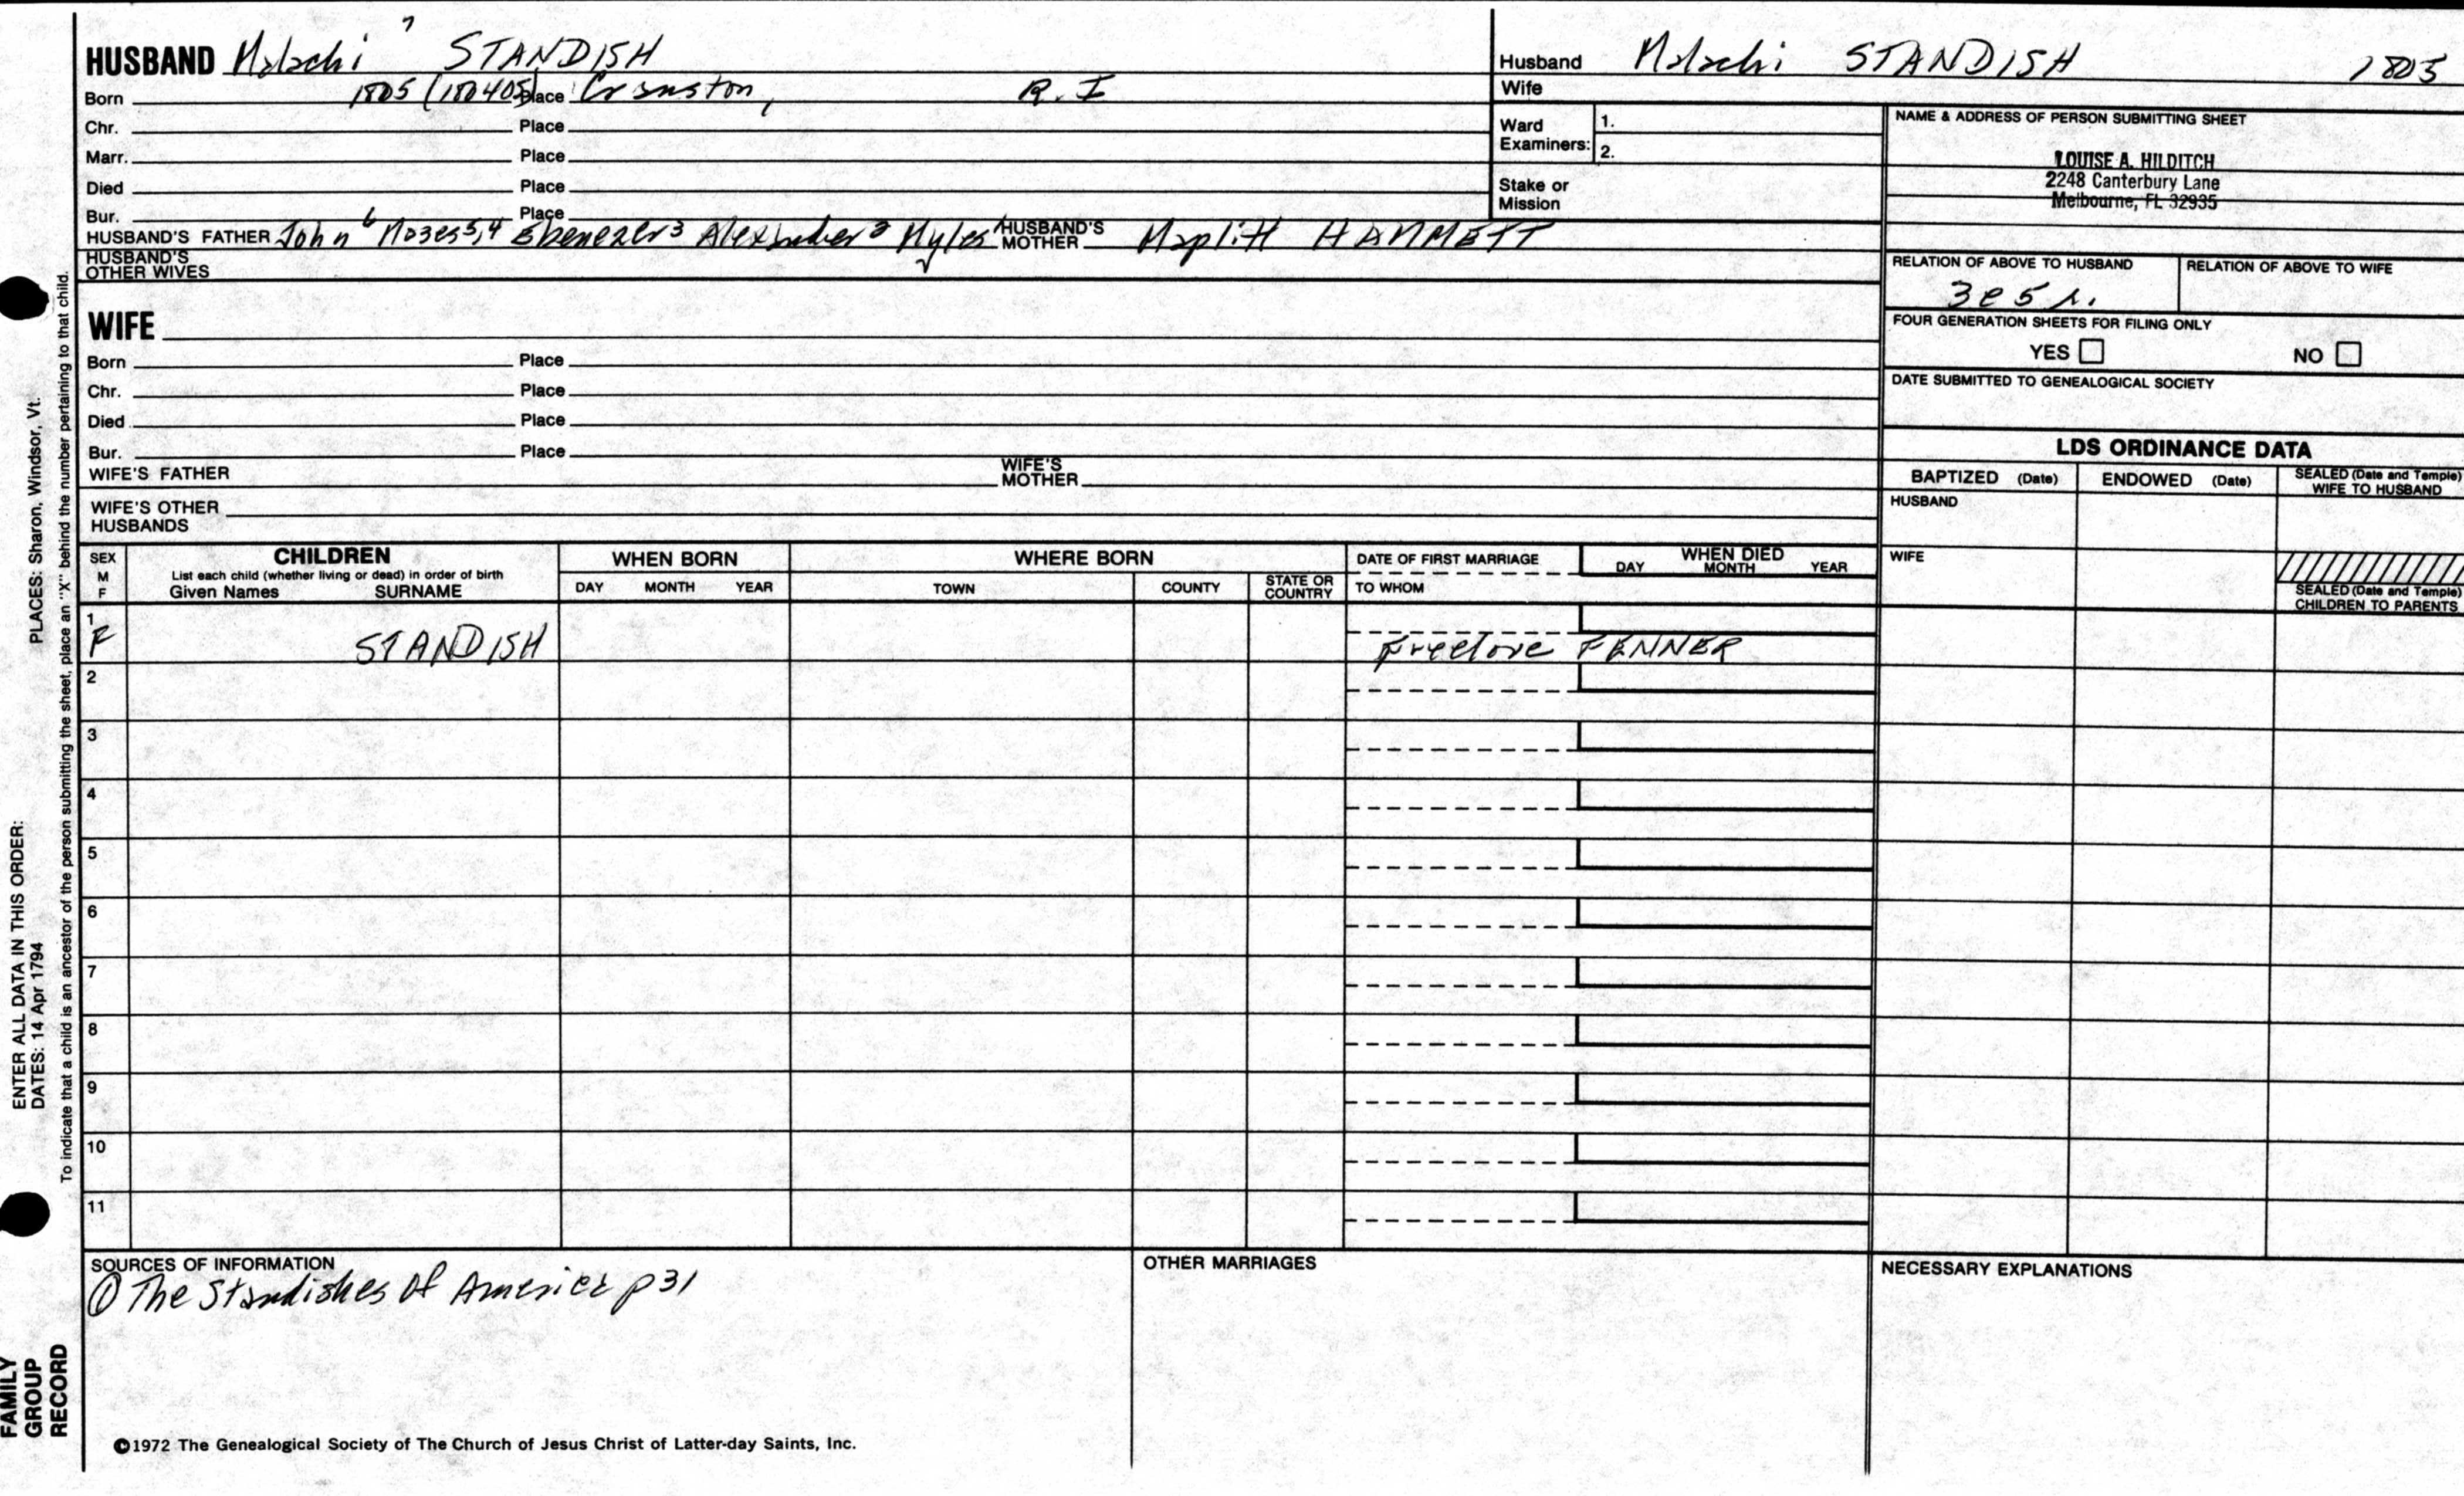 HUSBAND Malachi 7 STANDISH
Born 1805 (180405) Place Cranston, R.I
Chr. Place
Marr. Place
Died Place
Bur. Place
HUSBAND'S FATHER John 6 Mozes 5,4 Ebenezer 3 Alexander 2 Myles 1 HUSBAND'S MOTHER Maplitt HAMMETT
HUSBAND'S OTHER WIVES
Husband Malachi STANDISH 1805
Wife
Ward Examiners: 1.
2.
Stake or Mission
NAME & ADDRESS OF PERSON SUBMITTING SHEET
LOUISE A. HILDITCH
2248 Canterbury Lane
Melbourne, FL 32935
RELATION OF ABOVE TO HUSBAND RELATION OF ABOVE TO WIFE
FOUR GENERATION SHEETS FOR FILING ONLY
YES NO
DATE SUBMITTED TO GENEALOGICAL SOCIETY
WIFE
Born Place
Chr. Place
Died Place
Bur. Place
WIFE'S FATHER WIFE'S MOTHER
WIFE'S OTHER HUSBANDS
LDS ORDINANCE DATA
BAPTIZED (Date) ENDOWED (Date) SEALED (Date and Temple) WIFE TO HUSBAND
HUSBAND
WIFE
SEALED (Date and Temple) CHILDREN TO PARENTS
SEX M F
CHILDREN
List each child (whether living or dead) in order of birth
Given Names SURNAME
WHEN BORN
DAY MONTH YEAR
WHERE BORN
TOWN COUNTY STATE OR COUNTRY
DATE OF FIRST MARRIAGE
TO WHOM
WHEN DIED
DAY MONTH YEAR
1
F STANDISH Freelove FENNER
2
3
4
5
6
7
8
9
10
11
SOURCES OF INFORMATION
① The Standishes of America p 31
OTHER MARRIAGES
NECESSARY EXPLANATIONS
©1972 The Genealogical Society of The Church of Jesus Christ of Latter-day Saints, Inc.
ENTER ALL DATA IN THIS ORDER:
DATES: 14 Apr 1794 PLACES: Sharon, Windsor, Vt.
To indicate that a child is an ancestor of the person submitting the sheet, place an "X" behind the number pertaining to that child.
FAMILY
GROUP
RECORD